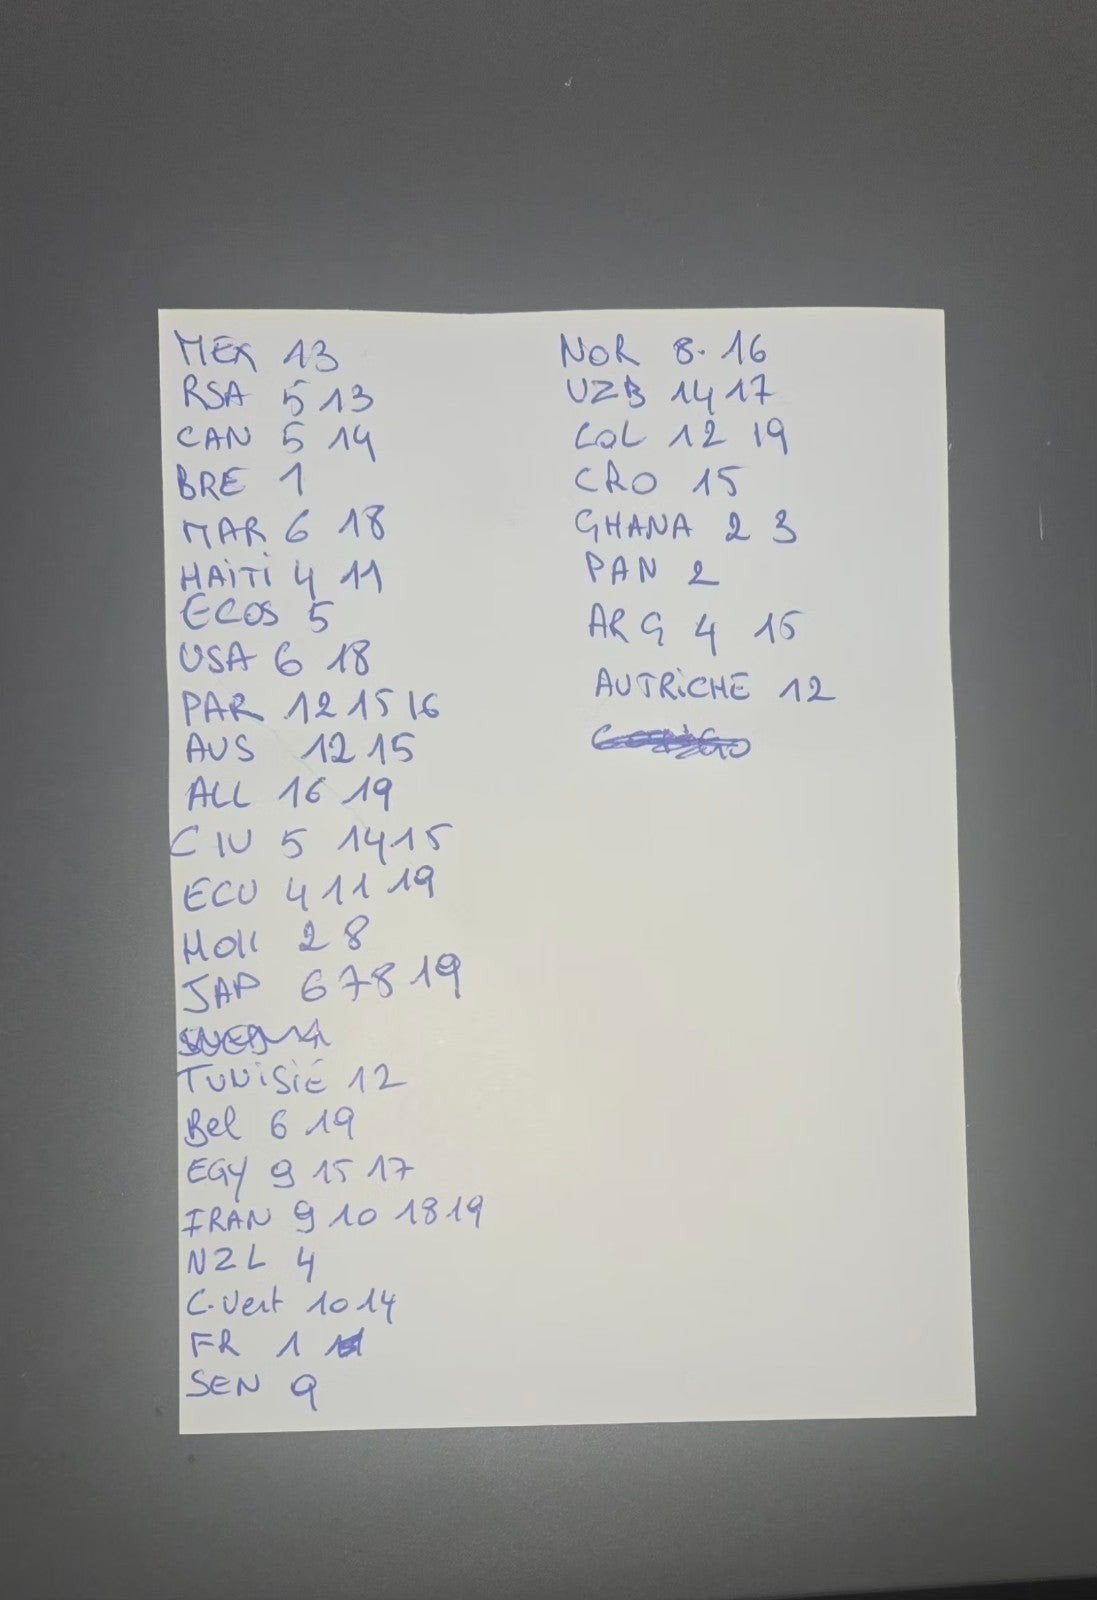 MEX 13
RSA 5 13
CAN 5 14
BRE 1
MAR 6 18
HAiTi 4 11
ECOS 5
USA 6 18
PAR 12 15 16
AUS 12 15
ALL 16 19
CIV 5 14 15
ECU 4 11 19
HOLL 2 8
JAP 6 7 8 19
TUNiSiE 12
Bel 6 19
EGY 9 15 17
IRAN 9 10 18 19
NZL 4
C.Vert 10 14
FR 1
SEN 9
NOR 8. 16
UZB 14 17
COL 12 19
CRO 15
GHANA 2 3
PAN 2
ARG 4 15
AUTRiCHE 12